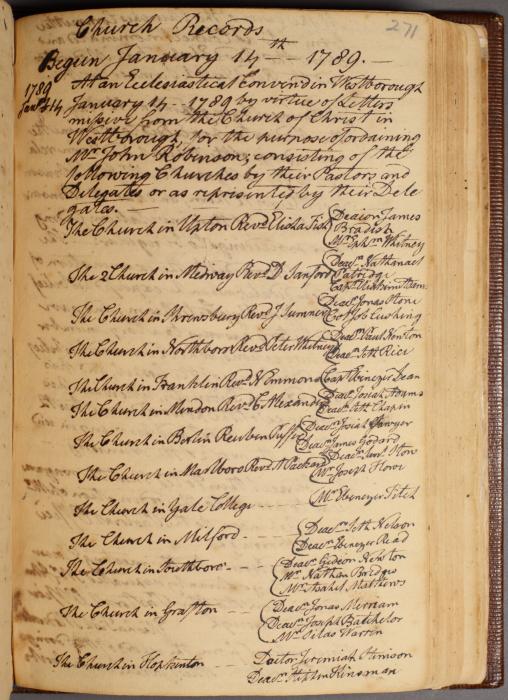 271
Church Records
Begun January 14th 1789.—
1789
Janry 14
At an Ecclesiastical Convend in Westborough
January 14 - 1789 by virtue of Letters
missive from the Church of Christ in
Westborough, for the purpose of ordaining
Mr. John Robinson; consisting of the
following Churches by their Pastors and
Delegates or as represented by their Dele
gates.—
The Church in Upton Revd. Elisha Fish
Deacon James
Bradish
Mr. Ephm Whitney
The 2 Church in Medway Revd. D Sanford
Deacn Nathanael
Patridge
Capt
The Church in Shrewsbury Revd. J Sumner
Deacn Jonas Stone
Job Cushing
The Church in Northboro Revd. Peter Whitney
Deacn Paul Newton
Deacn Seth Rice
The Church in Franklin Revd. N Emmons
Capt Ebenezer Dean
The Church in Mendon Revd. C Alexander
Deacn Josiah Adams
Deacn Seth Chapin
The Church in Berlin Reuben Puffer
Deacn Josiah Sawyer
Deacn James Godard
The Church in Marlboro Revd. A Packard
Deacn Saml Stow
Mr. Joseph Howe
The Church in Yale College
Mr. Ebenezer Fitch
The Church in Milford
Deacn Seth Nelson
Deacn Ebenezer Read
The Church in Southboro
Deacn Gideon Newton
Mr. Nathan Bridges
Mr. Asahel Matthews
The Church in Grafton
Deacn Jonas Merriam
Deacn Joseph Batchelor
Mr. Silas Warren
The Church in Hopkinton
Doctor Jeremiah Stimson
Deacn Stephen Kinsman